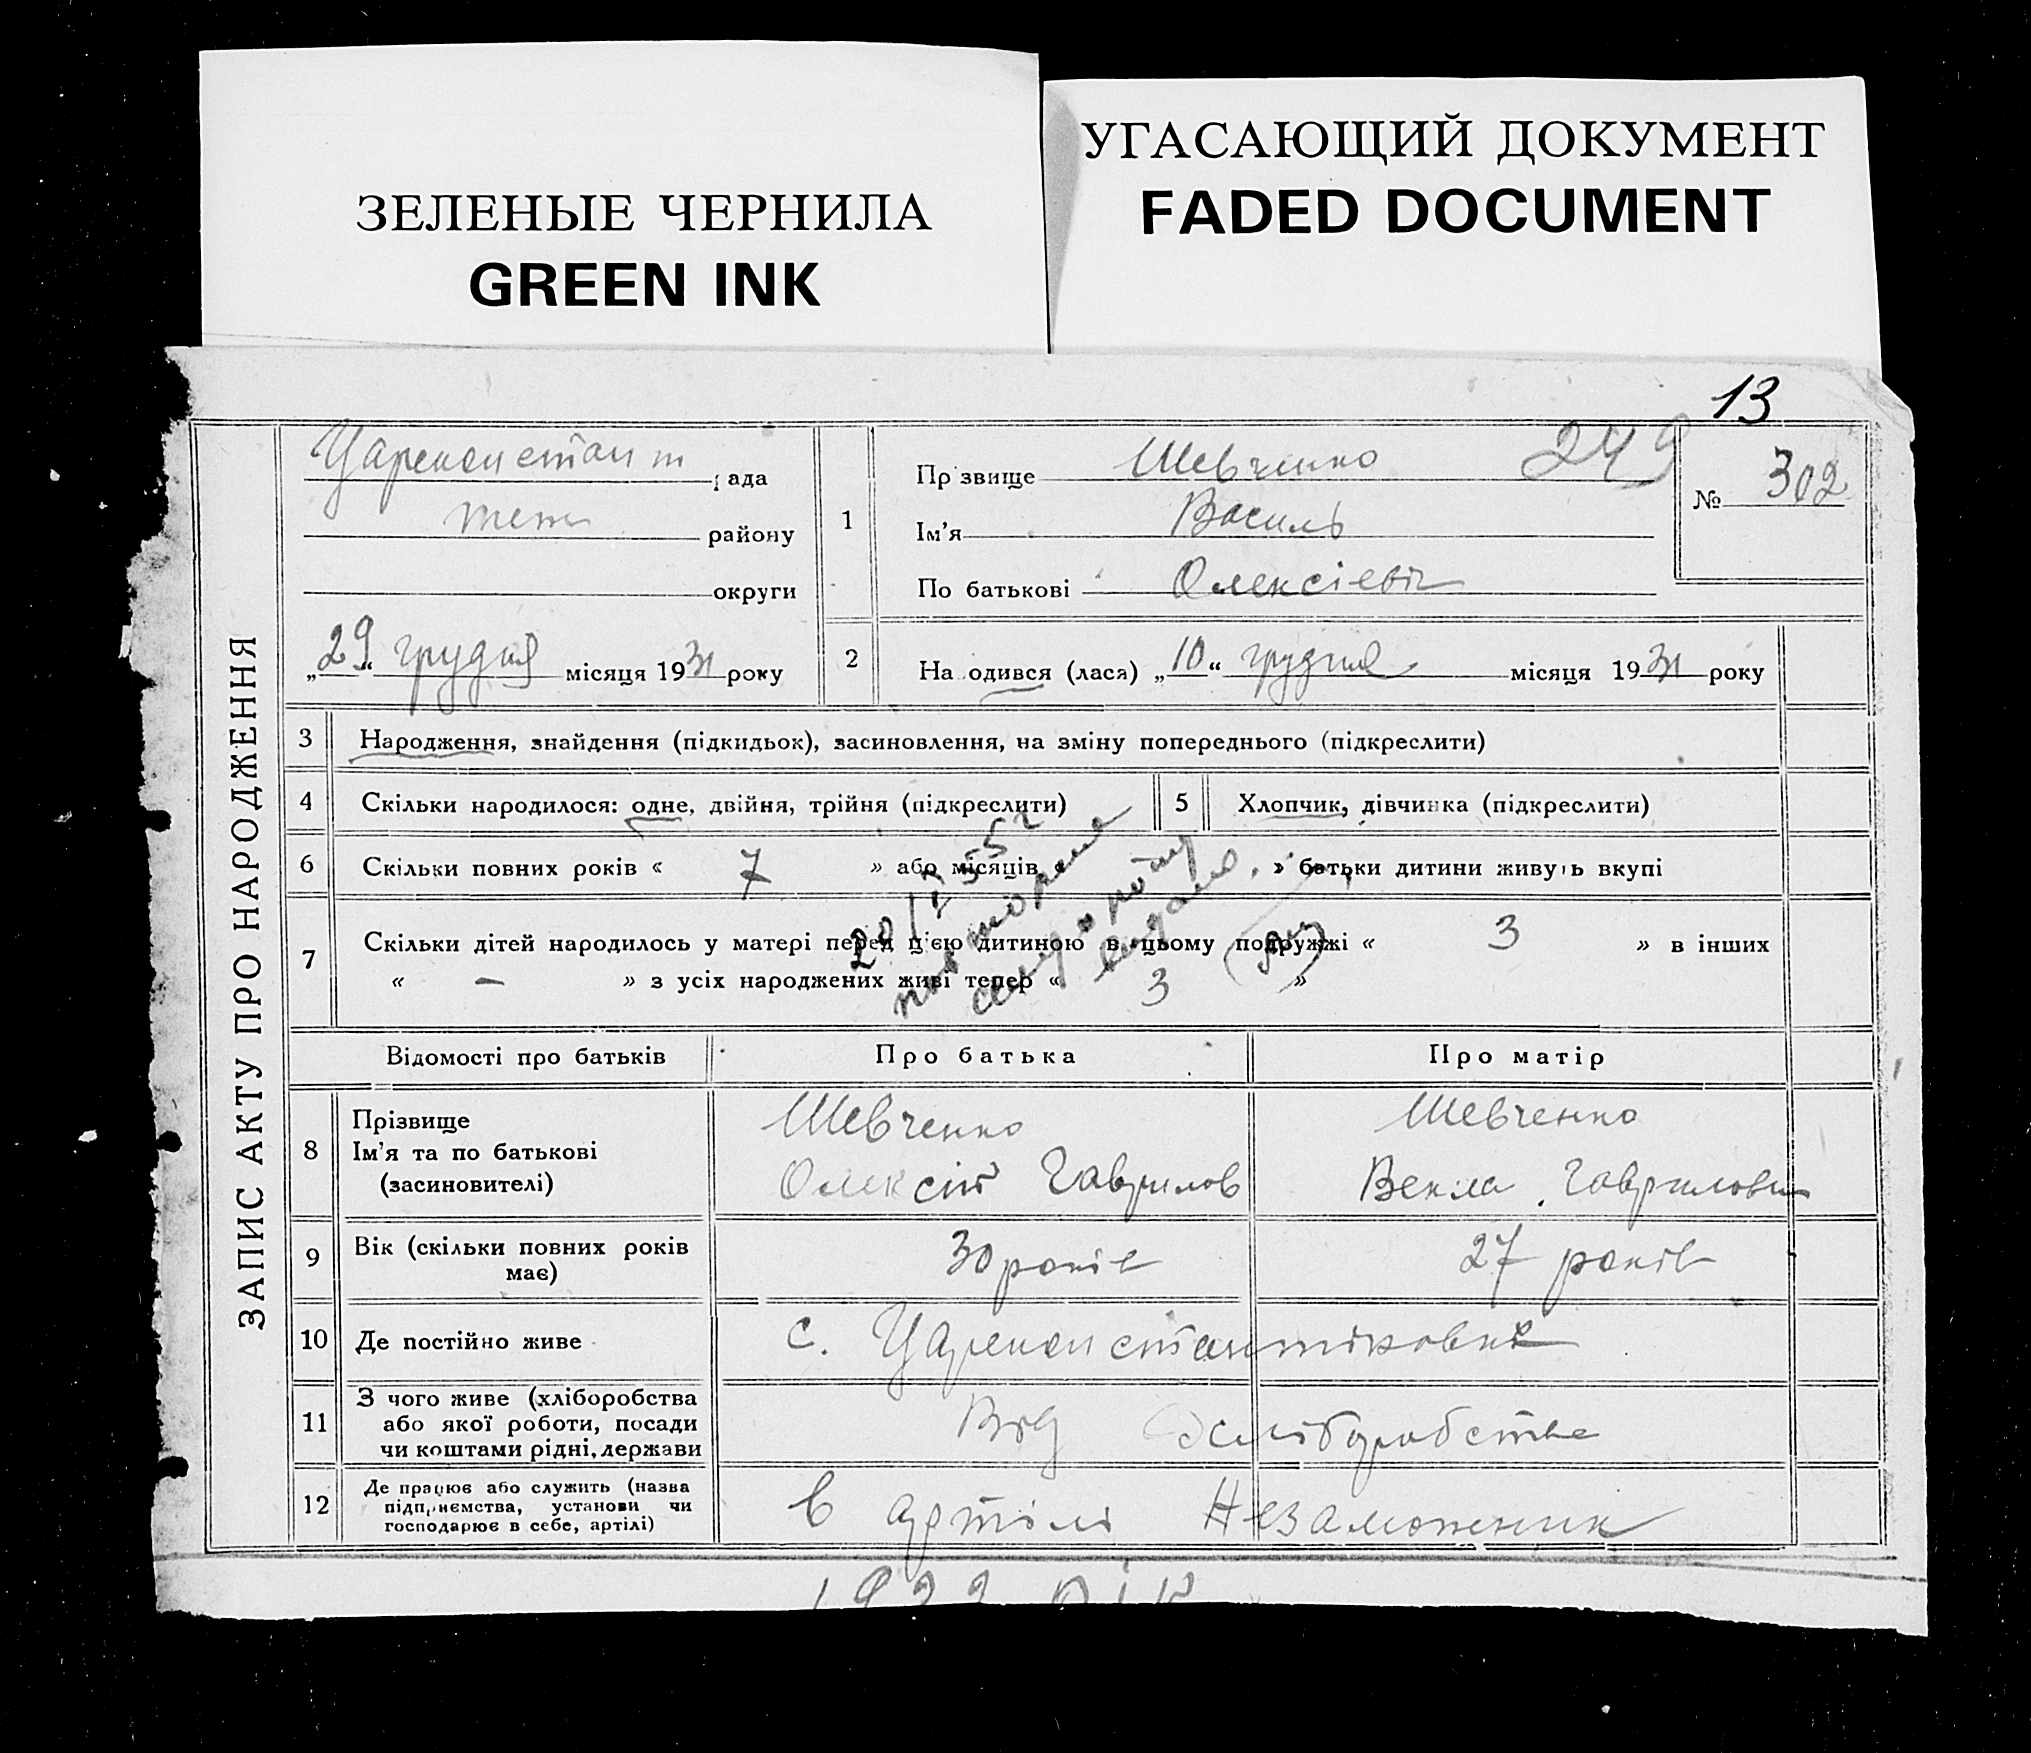 ЗЕЛЕНЫЕ ЧЕРНИЛА
GREEN INK
УГАСАЮЩИЙ ДОКУМЕНТ
FADED DOCUMENT
13
ЗАПИС АКТУ ПРО НАРОДЖЕННЯ
Цареконстант рада
району
округи
„29“ грудня місяця 1931 року
249
№ 302
1 Прізвище Шевченко
Ім'я Василь
По батькові Олексієвіч
2 Народився (лася) „10“ грудня місяця 1931 року
3 Народження, знайдення (підкидьок), засиновлення, на зміну попереднього (підкреслити)
4 Скільки народилося: одне, двійня, трійня (підкреслити) 5 Хлопчик, дівчинка (підкреслити)
6 Скільки повних років « 7 » або місяців « » батьки дитини живуть вкупі
7 Скільки дітей народилось у матері перед цією дитиною в цьому подружжі « 3 » в інших
« — » з усіх народжених живі тепер « 3 »
Відомості про батьків Про батька Про матір
8 Прізвище Шевченко Шевченко
Ім'я та по батькові Олексій Гаврилов Векла Гавриловна
(засиновителі)
9 Вік (скільки повних років має) 30 років 27 років
10 Де постійно живе с. Цареконстантиновка
11 З чого живе (хліборобства Від хліборобства
або якої роботи, посади
чи коштами рідні, держави
12 Де працює або служить (назва в артілі Незаможник
підприємства, установи чи
господарює в себе, артілі)